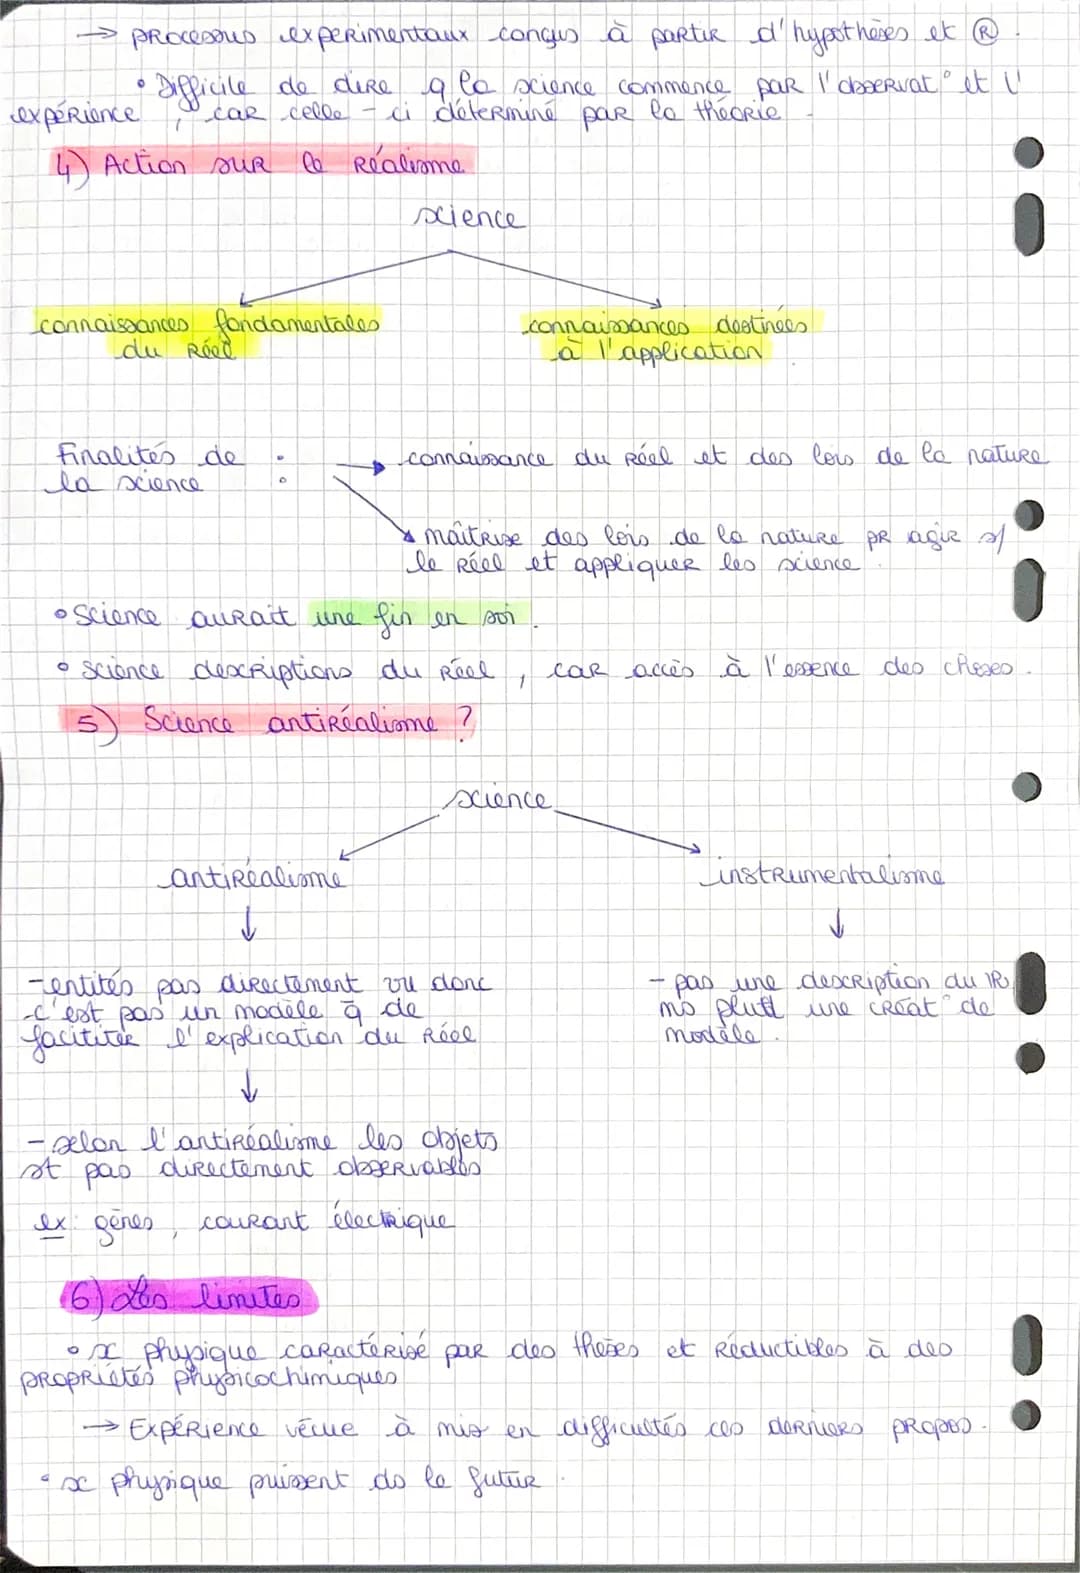 → processus experimentaux conçus à partir d'hypothèses et Ⓡ.
• Difficile de dire q la science commence par l'observat° et l'
expérience, car celle-ci déterminé par la théorie.
4) Action sur le réalisme
science
connaissances fondamentales
du réel
connaissances destinées
à l'application.
Finalités de
la science :
→ connaissance du réel et des lois de la nature
maîtrise des lois de la nature pr agir s/
le réel et appliquer les science.
• Science aurait une fin en soi.
• science descriptions du réel, car accès à l'essence des choses.
5) Science antiréalisme ?
science
antiréalisme
instrumentalisme
↓
↓
- entités pas directement vu donc
c'est pas un modèle q̄ de
facititer l'explication du réel
- pas une description du R,
ms plutt une créat° de
modèle.
↓
- selon l'antiréalisme les objets
st pas directement observables
ex: gènes, courant électrique
6) Les limites
• sc physique caractérisé par des thèses et réductibles à des
propriétés physicochimiques
→ Expérience vécue à mis en difficultés ces derniers propos.
• sc physique puissent ds le futur.